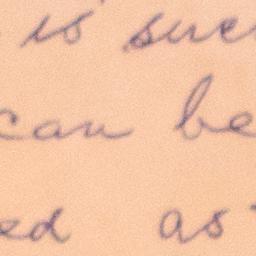 is suc
can be
ed as